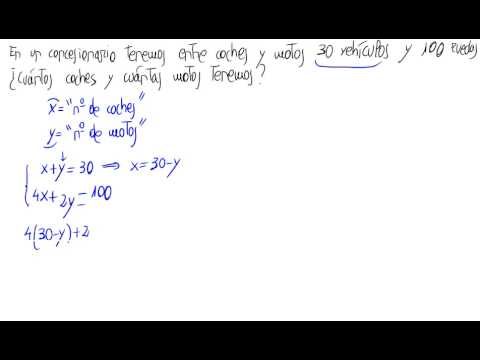 En un concesionario tenemos entre coches y motos 30 vehículos y 100 ruedas
¿cuántos coches y cuántas motos tenemos?
x="nº de coches"
y="nº de motos"
x+y=30 ⟹ x=30-y
4x+2y=100
4(30-y)+2